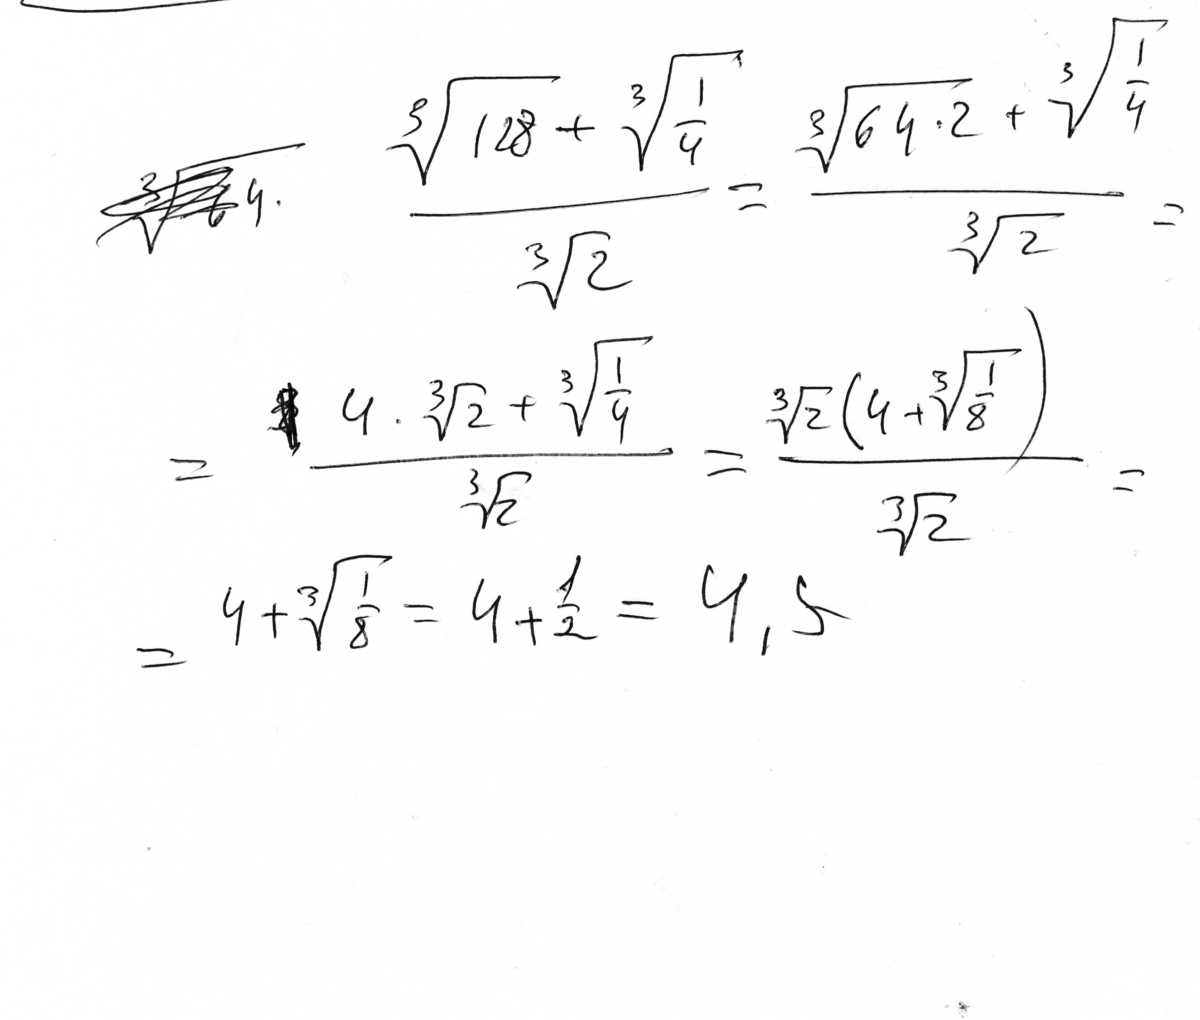 \frac{\sqrt[3]{128} + \sqrt[3]{\frac{1}{4}}}{\sqrt[3]{2}} = \frac{\sqrt[3]{64 \cdot 2} + \sqrt[3]{\frac{1}{4}}}{\sqrt[3]{2}} =
= \frac{4 \cdot \sqrt[3]{2} + \sqrt[3]{\frac{1}{4}}}{\sqrt[3]{2}} = \frac{\sqrt[3]{2} \left( 4 + \sqrt[3]{\frac{1}{8}} \right)}{\sqrt[3]{2}} =
= 4 + \sqrt[3]{\frac{1}{8}} = 4 + \frac{1}{2} = 4,5